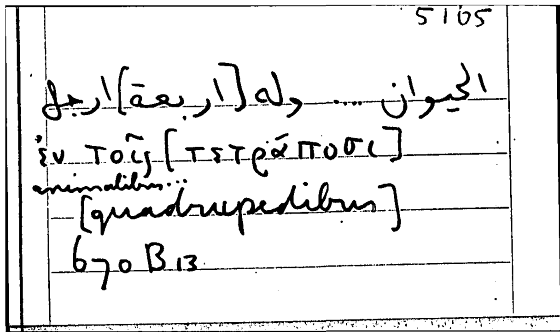 5105
الحيوان .... وله [اربعة] ارجل
ἐν τοῖς [τετράποσι]
animalibus...
[quadrupedibus]
670 B 13